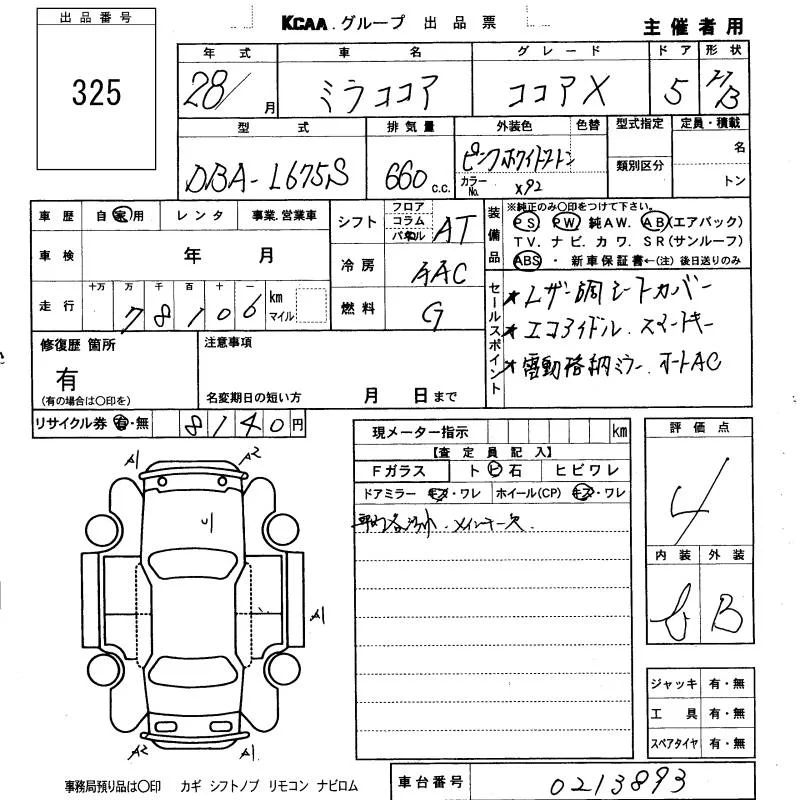 出品番号
325
KCAA.グループ 出品票
主催者用
年式 車名 グレード ドア 形状
28/ 月 ミラココア ココアX 5 H/B
型式 排気量 外装色 色替 型式指定 定員・積載
DBA-L675S 660 c.c. ピンクホワイトツートン
カラーNo. X92
類別区分
名
トン
車歴 自家用 レンタ 事業.営業車
車検 年 月
走行 十万 万 千 百 十 一
78106 km マイル
シフト フロア コラム パネル AT
冷房 AAC
燃料 G
装備品
※純正のみ〇印をつけて下さい。
PS PW 純AW. AB(エアバック)
TV. ナビ. カワ. SR(サンルーフ)
ABS ・ 新車保証書←(注)後日送りのみ
セールスポイント
★レザー調シートカバー
★エコアイドル.スマートキー
★電動格納ミラー.オートAC
修復歴 箇所
有
(有の場合は〇印を)
注意事項
名変期日の短い方 月 日まで
リサイクル券 有・無 8140円
現メーター指示 km
【査定員記入】
Fガラス ト ビ 石 ヒビワレ
ドアミラー キズ・ワレ ホイール(CP) キズ・ワレ
メインキー欠.
評価点
4
内装 外装
B
A1 A2
A1 A1
A2 A1
ジャッキ 有・無
工具 有・無
スペアタイヤ 有・無
事務局預り品は〇印 カギ シフトノブ リモコン ナビロム
車台番号 0213893